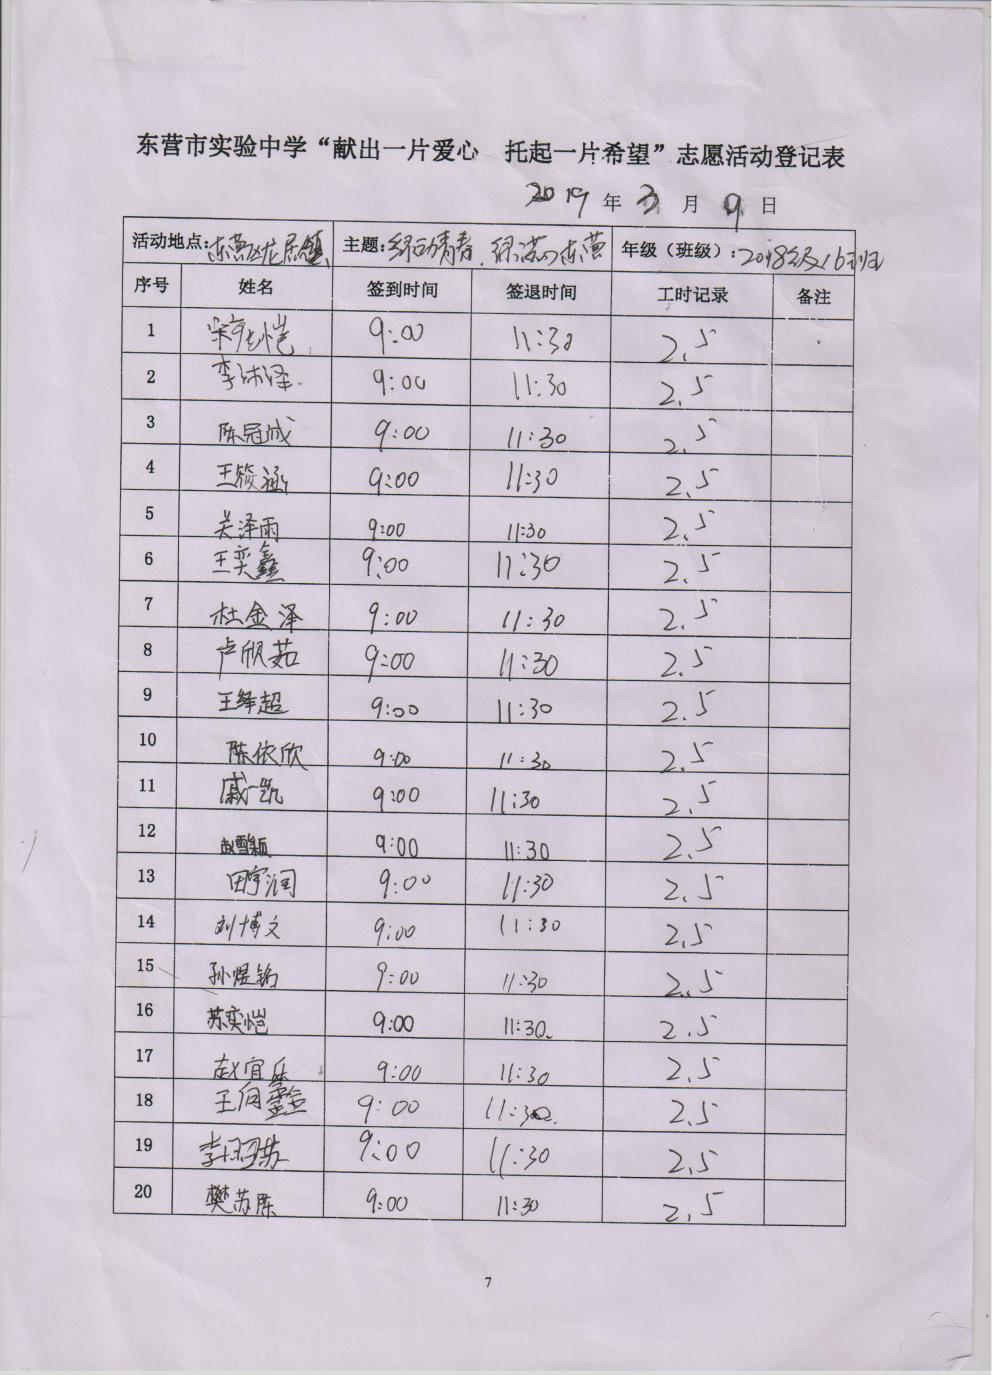 东营市实验中学“献出一片爱心 托起一片希望”志愿活动登记表
2019 年 3 月 9 日
活动地点:东营区龙居镇 主题:绿动青春、绿满东营 年级（班级）:2018级16班
序号 姓名 签到时间 签退时间 工时记录 备注
1 9:00 11:30 2.5
2 李沐泽 9:00 11:30 2.5
3 陈冠成 9:00 11:30 2.5
4 王筱涵 9:00 11:30 2.5
5 关泽雨 9:00 11:30 2.5
6 王奕鑫 9:00 11:30 2.5
7 杜金泽 9:00 11:30 2.5
8 卢欣茹 9:00 11:30 2.5
9 王绎超 9:00 11:30 2.5
10 陈依欣 9:00 11:30 2.5
11 戚一凯 9:00 11:30 2.5
12 赵雪颖 9:00 11:30 2.5
13 田宇润 9:00 11:30 2.5
14 刘博文 9:00 11:30 2.5
15 孙煜铭 9:00 11:30 2.5
16 苏奕恺 9:00 11:30 2.5
17 赵宜乐 9:00 11:30 2.5
18 9:00 11:30 2.5
19 9:00 11:30 2.5
20 樊苏陈 9:00 11:30 2.5
7